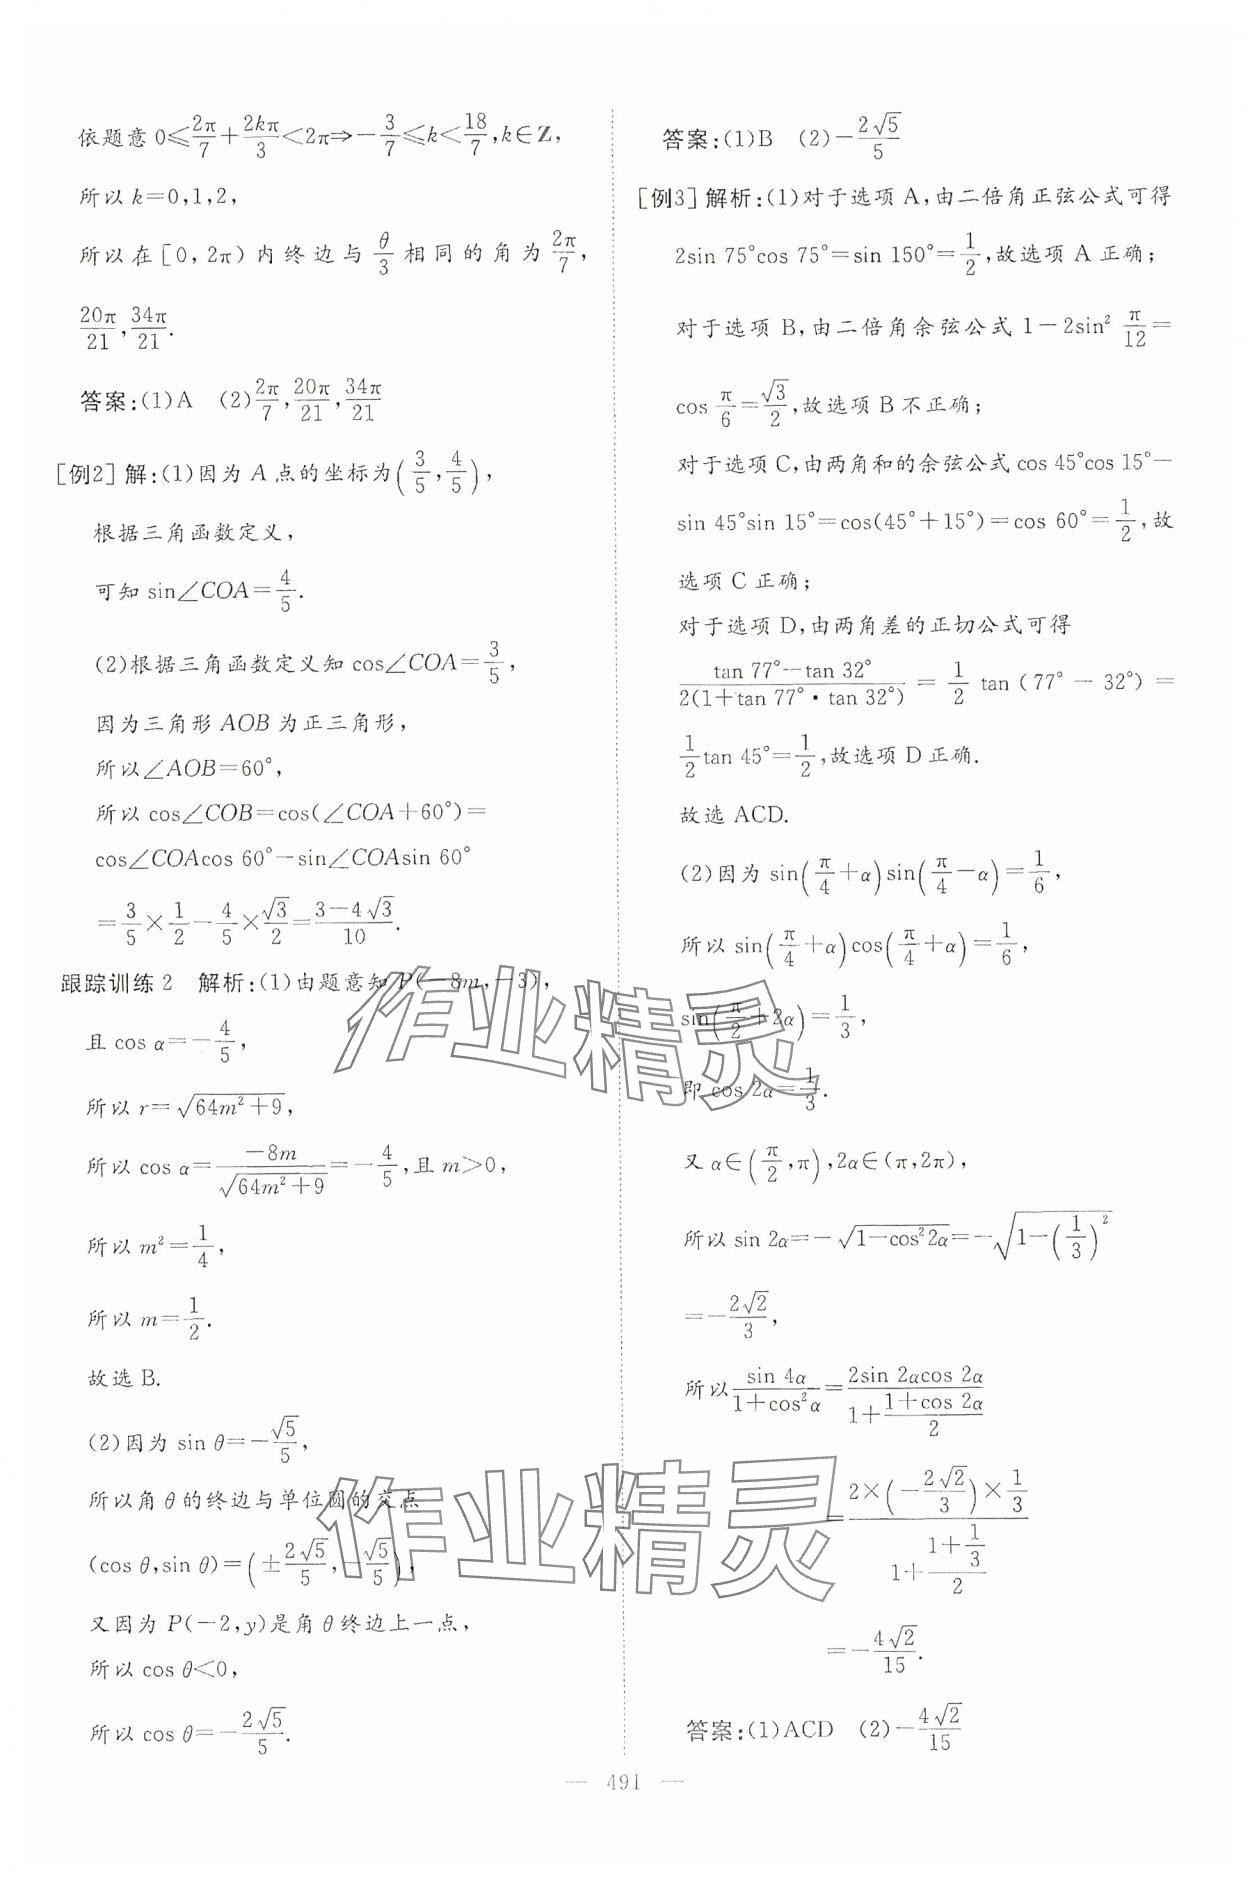 依题意 0≤2π/7+2kπ/3<2π⇒-3/7≤k<18/7,k∈Z,
所以 k=0,1,2,
所以在[0,2π)内终边与θ/3相同的角为2π/7,
20π/21,34π/21.
答案:(1)A (2)2π/7,20π/21,34π/21
[例2]解:(1)因为 A 点的坐标为(3/5,4/5),
根据三角函数定义,
可知 sin∠COA=4/5.
(2)根据三角函数定义知 cos∠COA=3/5,
因为三角形 AOB 为正三角形,
所以∠AOB=60°,
所以 cos∠COB=cos(∠COA+60°)=
cos∠COAcos 60°-sin∠COAsin 60°
=3/5×1/2-4/5×√3/2=(3-4√3)/10.
跟踪训练 2 解析:(1)由题意知 P(-8m,-3),
且 cos α=-4/5,
所以 r=√(64m²+9),
所以 cos α=-8m/√(64m²+9)=-4/5,且 m>0,
所以 m²=1/4,
所以 m=1/2.
故选 B.
(2)因为 sin θ=-√5/5,
所以角 θ 的终边与单位圆的交点
(cos θ,sin θ)=(±2√5/5,-√5/5),
又因为 P(-2,y)是角 θ 终边上一点,
所以 cos θ<0,
所以 cos θ=-2√5/5.
答案:(1)B (2)-2√5/5
[例3]解析:(1)对于选项 A,由二倍角正弦公式可得
2sin 75°cos 75°=sin 150°=1/2,故选项 A 正确;
对于选项 B,由二倍角余弦公式 1-2sin² π/12=
cos π/6=√3/2,故选项 B 不正确;
对于选项 C,由两角和的余弦公式 cos 45°cos 15°-
sin 45°sin 15°=cos(45°+15°)=cos 60°=1/2,故
选项 C 正确;
对于选项 D,由两角差的正切公式可得
(tan 77°-tan 32°)/(2(1+tan 77°·tan 32°))=1/2 tan(77°-32°)=
1/2 tan 45°=1/2,故选项 D 正确.
故选 ACD.
(2)因为 sin(π/4+α)sin(π/4-α)=1/6,
所以 sin(π/4+α)cos(π/4+α)=1/6,
sin(π/2+2α)=1/3,
即 cos 2α=1/3.
又 α∈(π/2,π),2α∈(π,2π),
所以 sin 2α=-√(1-cos²2α)=-√(1-(1/3)²)
=-2√2/3,
所以 sin 4α/(1+cos²α)=2sin 2αcos 2α/(1+(1+cos 2α)/2)
=2×(-2√2/3)×1/3/(1+(1+1/3)/2)
=-4√2/15.
答案:(1)ACD (2)-4√2/15
— 491 —
作业精灵
作业精灵